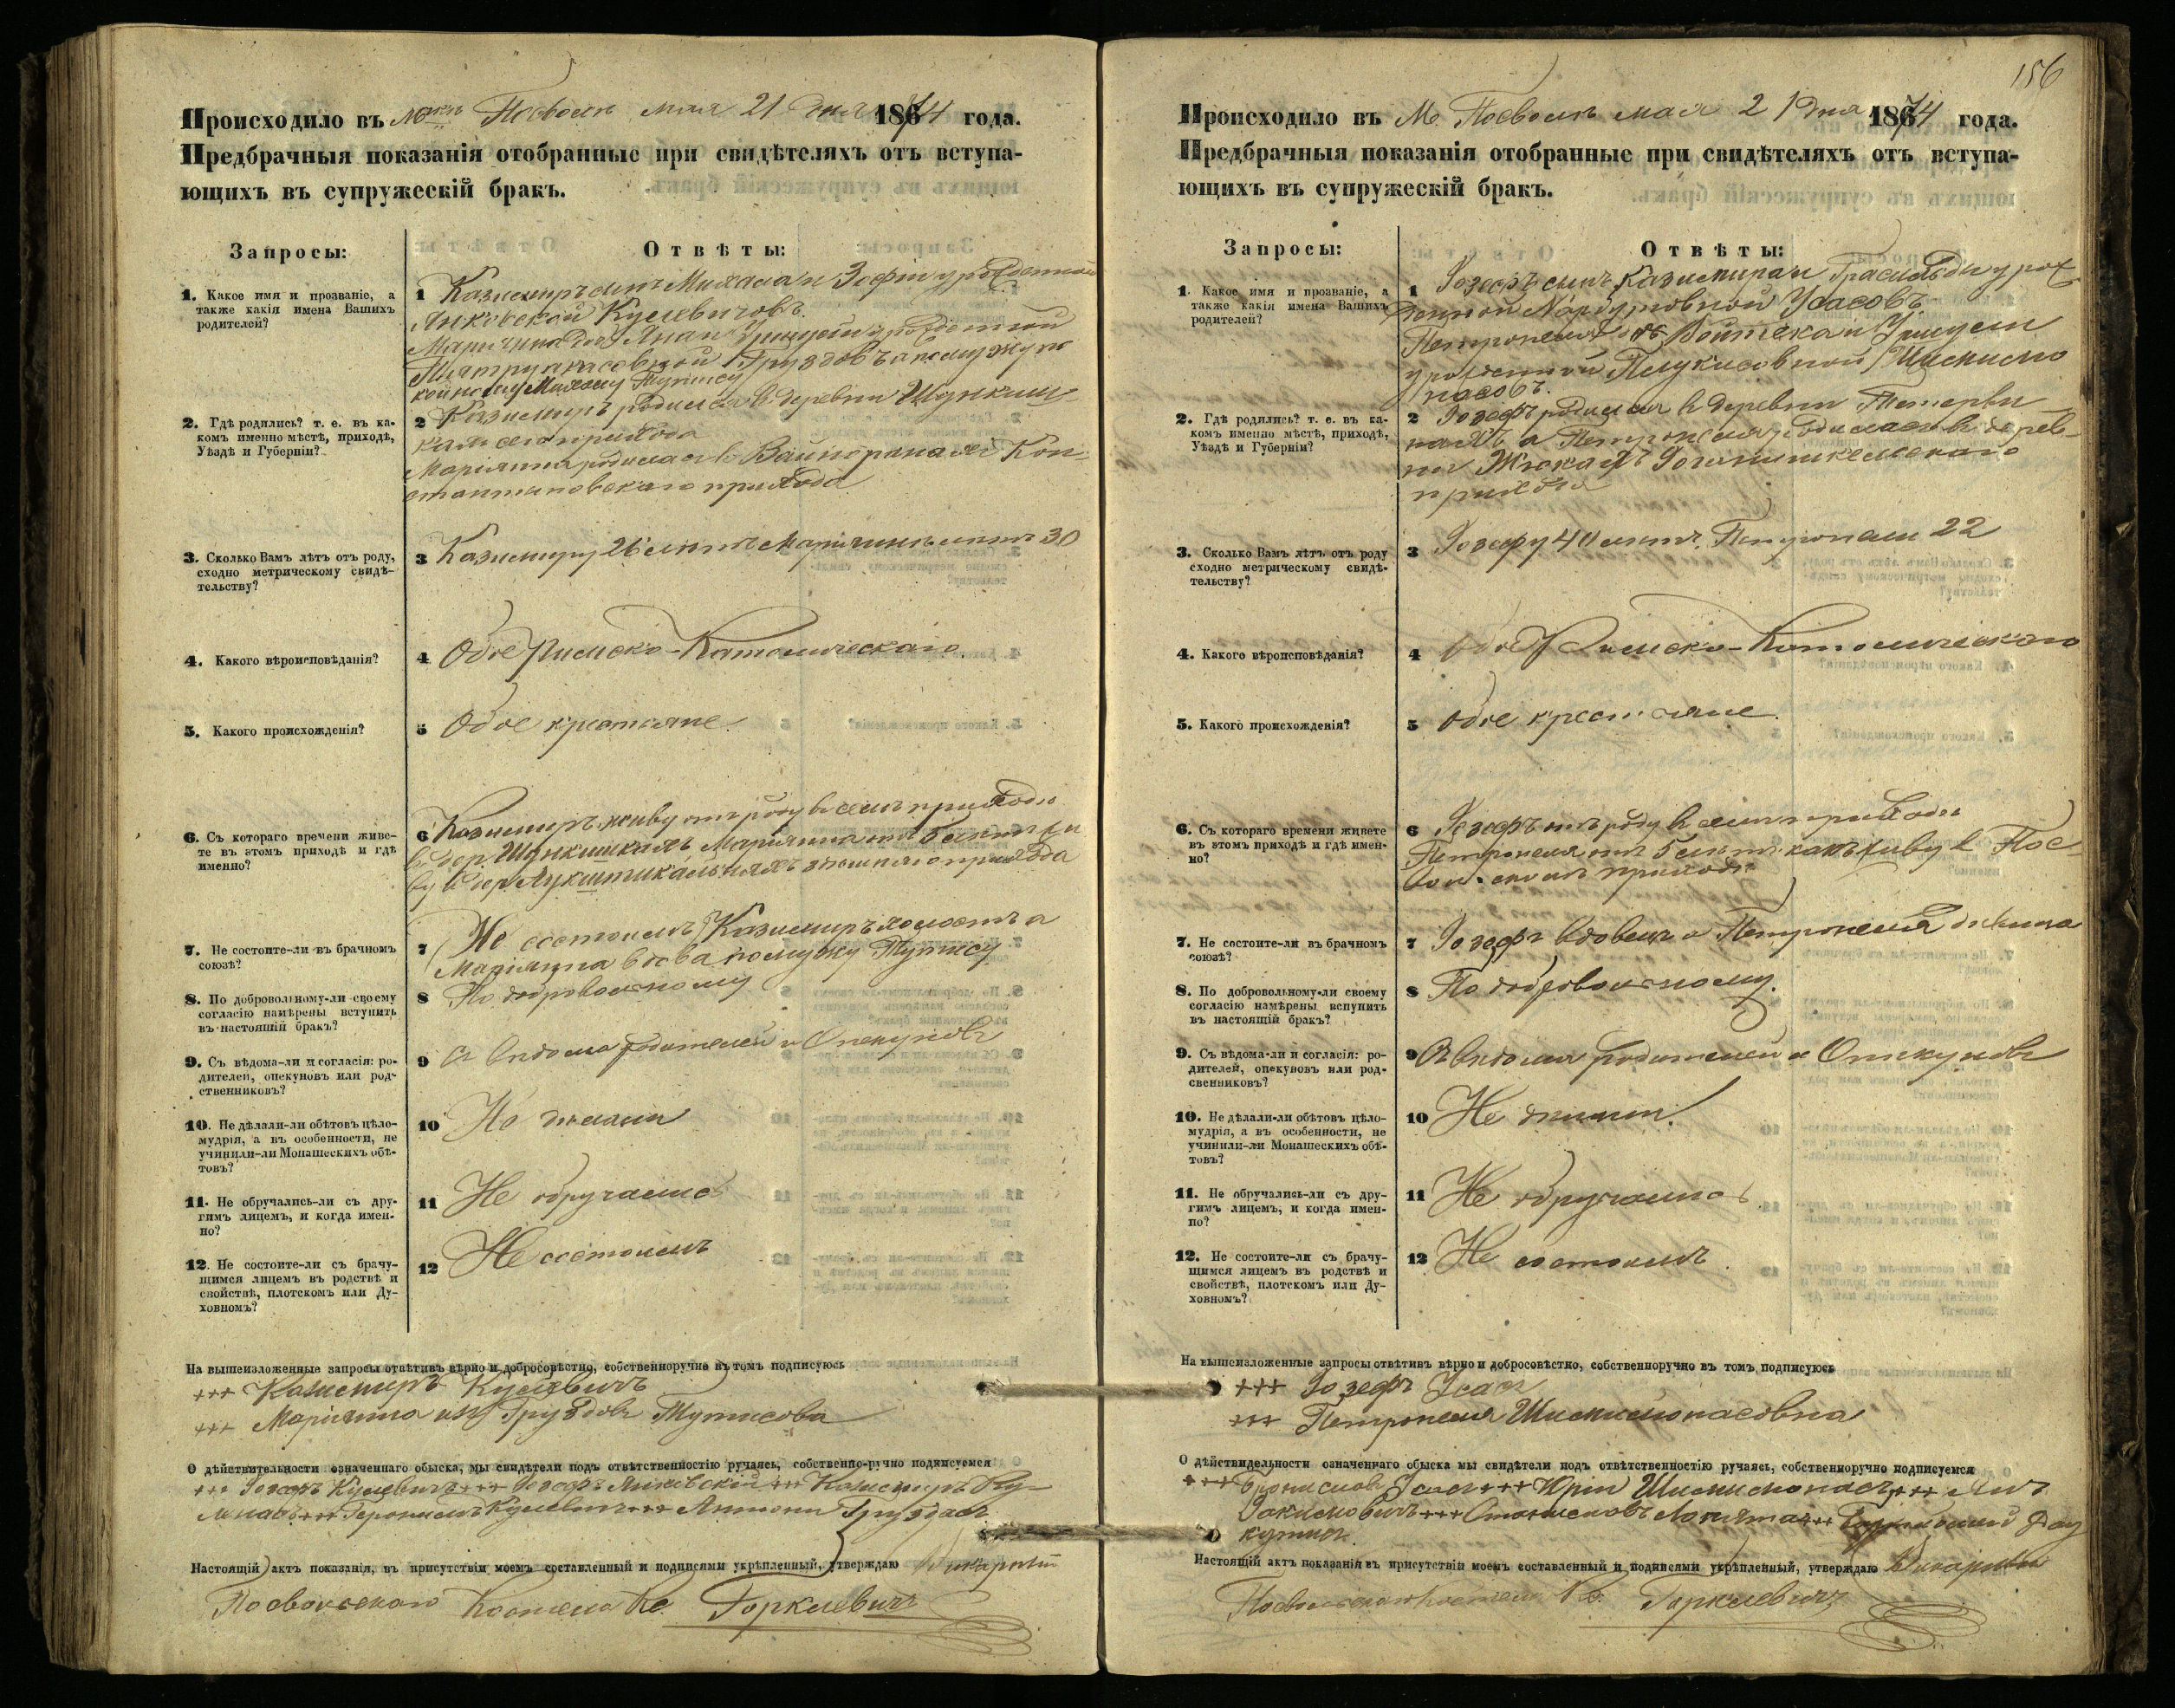 156
Происходило въ Мѣст. Посволѣ мая 21 дня 1874 года.
Предбрачныя показанія отобранные при свидѣтеляхъ отъ вступа-
ющихъ въ супружескій бракъ.
Запросы: Отвѣты:
1. Какое имя и прозваніе, а
также какія имена Вашихъ
родителей?
1 Казимиръ сынъ Михала и Зофіи урожденной
Янковской Кулевичовъ.
Маріянна дочь Яна и Уршули урожденной
Груздовъ а по мужу по
койному Михалу Тупису
2. Гдѣ родились? т. е. въ ка-
комъ именно мѣстѣ, приходѣ,
Уѣздѣ и Губерніи?
2 Казимиръ родился въ деревни Шункиш
кахъ сего прихода
Маріянна родилась въ Кон-
стантиновскаго прихода
3. Сколько Вамъ лѣтъ отъ роду,
сходно метрическому свидѣ-
тельству?
3 Казимиру 26 лѣтъ Маріяннѣ лѣтъ 30
4. Какого вѣроисповѣданія?
4 Обое Римско-Католическаго
5. Какого происхожденія?
5 Обое крестьяне
6. Съ котораго времени живе-
те въ этомъ приходѣ и гдѣ
именно?
6 Казимиръ живу отъ роду въ семъ приходѣ
въ дер. Шункишкахъ Маріянна отъ 5 лѣтъ жи
ву въ дер. здѣшняго прихода
7. Не состоите-ли въ брачномъ
союзѣ?
7 Не состоимъ, Казимиръ холостъ а
Маріянна вдова по мужу Тупису
8. По добровольному-ли своему
согласію намѣрены вступить
въ настоящій бракъ?
8 По добровольному
9. Съ вѣдома-ли и согласія: ро-
дителей, опекуновъ или род-
ственниковъ?
9 Съ вѣдома родителей и Опекуновъ
10. Не дѣлали-ли обѣтовъ цѣло-
мудрія, а въ особенности, не
учинили-ли Монашескихъ обѣ-
товъ?
10 Не дѣлали
11. Не обручались-ли съ дру-
гимъ лицемъ, и когда имен-
но?
11 Не обручались
12. Не состоите-ли съ брачу-
щимся лицемъ въ родствѣ и
свойствѣ, плотскомъ или Ду-
ховномъ?
12 Не состоимъ
На вышеизложенные запросы отвѣтивъ вѣрно и добросовѣстно, собственноручно въ томъ подписуюсь
+++ Казимиръ Кулевичъ
+++ Маріянна изъ Груздовъ Туписова
О дѣйствительности означеннаго обыска, мы свидѣтели подъ отвѣтственностію ручаясь, собственно-ручно подписуемся
+++ Іозефъ Кулевичъ +++ Іозефъ Янковскій +++ Казимиръ
+++ Геронимъ Кулевичъ +++ Антони Груздасъ
Настоящій актъ показанія, въ присутствіи моемъ составленный и подписями укрѣпленный, утверждаю Викарный
Посвольскаго Костела Кс. Горклевичъ
Происходило въ М. Посволѣ мая 21 дня 1874 года.
Предбрачныя показанія отобранные при свидѣтеляхъ отъ вступа-
ющихъ въ супружескій бракъ.
Запросы: Отвѣты:
1. Какое имя и прозваніе, а
также какія имена Вашихъ
родителей?
1 Іозефъ сынъ Казимира и Грасильды урож
денной Усасовъ
Петронеля дочь Войтеха и Уршули
урожденной Шимкемо
насовъ.
2. Гдѣ родились? т. е. въ ка-
комъ именно мѣстѣ, приходѣ,
Уѣздѣ и Губерніи?
2 Іозефъ родился въ деревни
а Петронеля родилась въ дерев-
ни Жюкахъ
прихода
3. Сколько Вамъ лѣтъ отъ роду
сходно метрическому свидѣ-
тельству?
3 Іозефу 40 лѣтъ, Петронели 22
4. Какого вѣроисповѣданія?
4 Обое Римско-Католическаго
5. Какого происхожденія?
5 Обое крестьяне.
6. Съ котораго времени живете
въ этомъ приходѣ и гдѣ имен-
но?
6 Іозефъ отъ роду въ семъ приходѣ
Петронеля отъ 5 лѣтъ какъ живу въ Пос-
вольскомъ приходѣ
7. Не состоите-ли въ брачномъ
союзѣ?
7 Іозефъ вдовецъ а Петронеля дѣвица
8. По добровольному-ли своему
согласію намѣрены вспунить
въ настоящій бракъ?
8 По добровольному.
9. Съ вѣдома-ли и согласія: ро-
дителей, опекуновъ или род-
свенниковъ?
9 Съ вѣдома родителей и Опекуновъ
10. Не дѣлали-ли обѣтовъ цѣло-
мудрія, а въ особенности, не
учинили-ли Монашескихъ обѣ-
товъ?
10 Не дѣлали.
11. Не обручались-ли съ дру-
гимъ лицемъ, и когда имен-
но?
11 Не обручались
12. Не состоите-ли съ брачу-
щимся лицемъ въ родствѣ и
свойствѣ, плотскомъ или Ду-
ховномъ?
12 Не состоимъ.
На вышеизложенные запросы отвѣтивъ вѣрно и добросовѣстно, собственноручно въ томъ подписуюсь
+++ Іозефъ Усасъ
+++ Петронеля
О дѣйствидельности означеннаго обыска мы свидѣтели подъ отвѣтственностію ручаясь, собственноручно подписуемся
+++ Брониславъ Усасъ +++ Юрій +++ Янъ
+++ Станиславъ +++
Настоящій актъ показанія въ присутствіи моемъ составленный и подписями укрѣпленный, утверждаю Викарный
Посвольскаго Костела Кс. Горклевичъ